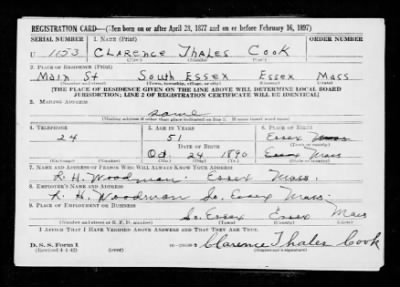 REGISTRATION CARD—(Men born on or after April 28, 1877 and on or before February 16, 1897)
SERIAL NUMBER 1. NAME (Print) ORDER NUMBER
U 1153 CLARENCE Thales Cook
(First) (Middle) (Last)
2. PLACE OF RESIDENCE (Print)
Main St South Essex Essex Mass
(Number and street) (Town, township, village, or city) (County) (State)
[THE PLACE OF RESIDENCE GIVEN ON THE LINE ABOVE WILL DETERMINE LOCAL BOARD
JURISDICTION; LINE 2 OF REGISTRATION CERTIFICATE WILL BE IDENTICAL]
3. MAILING ADDRESS
same
[Mailing address if other than place indicated on line 2. If same insert word same]
4. TELEPHONE 5. AGE IN YEARS 6. PLACE OF BIRTH
24 51 Essex Mass
DATE OF BIRTH
Oct. 24 1890 Essex Mass
7. NAME AND ADDRESS OF PERSON WHO WILL ALWAYS KNOW YOUR ADDRESS
R. H. Woodman. Essex Mass.
8. EMPLOYER'S NAME AND ADDRESS
R. H. Woodman So. Essex Mass.
9. PLACE OF EMPLOYMENT OR BUSINESS
So. Essex Essex Mass
(Number and street or R. F. D. number) (Town) (County) (State)
I AFFIRM THAT I HAVE VERIFIED ABOVE ANSWERS AND THAT THEY ARE TRUE.
D. S. S. Form 1
(Revised 4-1-42)
Clarence Thales Cook
(Registrant's signature)